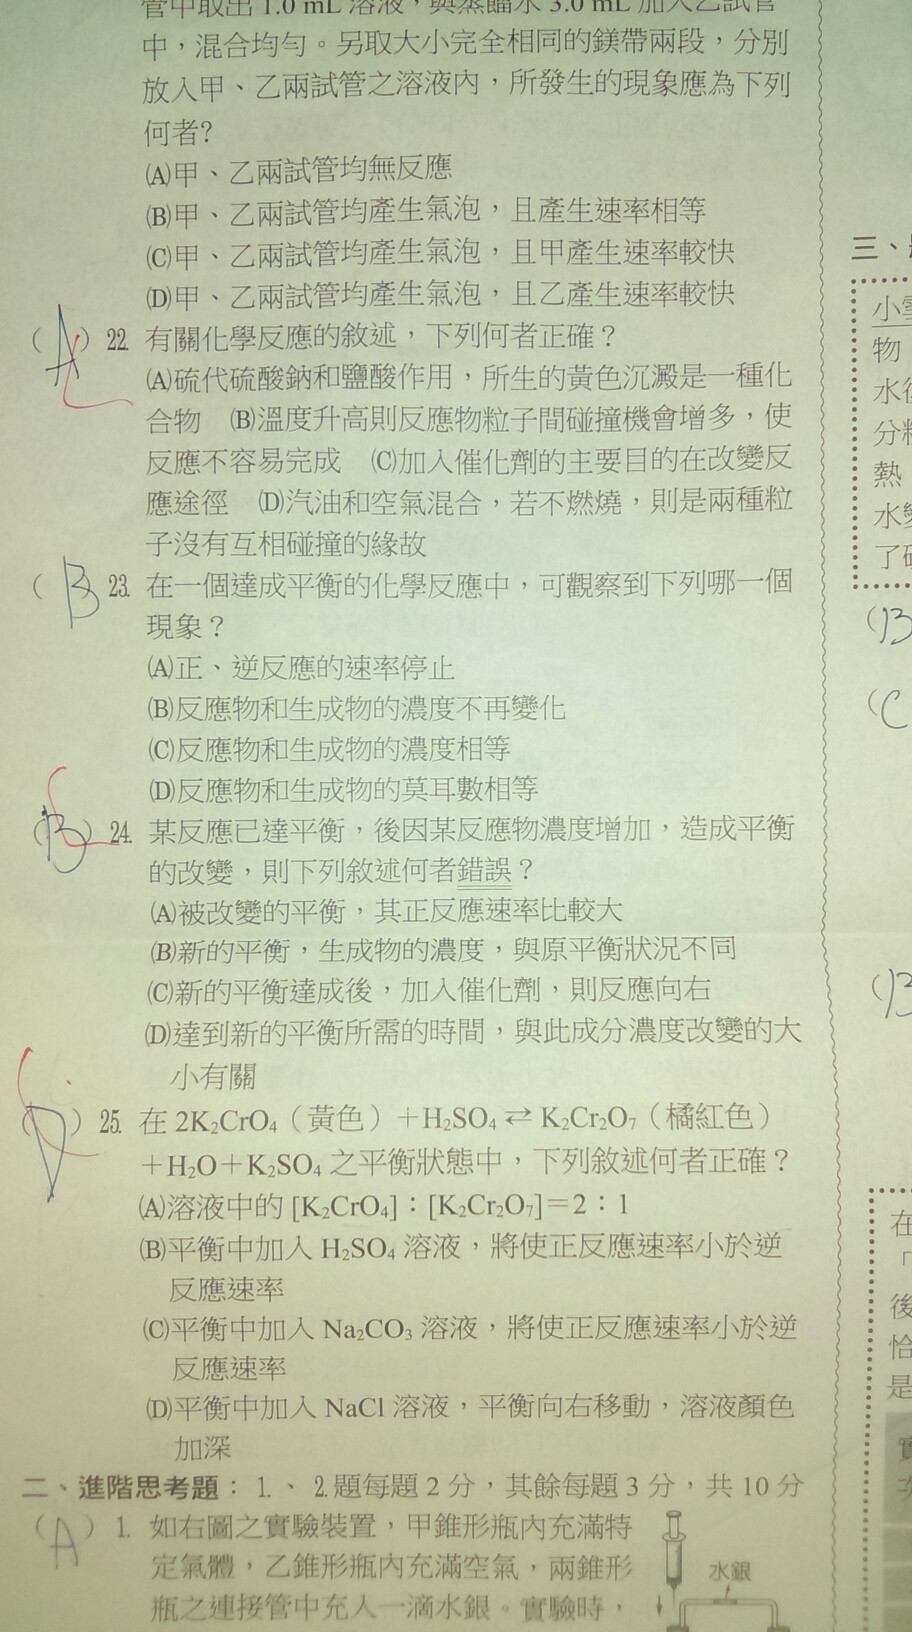 管中取出 1.0 mL 溶液，與蒸餾水 3.0 mL 加入乙試管
中，混合均勻。另取大小完全相同的鎂帶兩段，分別
放入甲、乙兩試管之溶液內，所發生的現象應為下列
何者?
(A)甲、乙兩試管均無反應
(B)甲、乙兩試管均產生氣泡，且產生速率相等
(C)甲、乙兩試管均產生氣泡，且甲產生速率較快
(D)甲、乙兩試管均產生氣泡，且乙產生速率較快
(A) 22. 有關化學反應的敘述，下列何者正確？
(A)硫代硫酸鈉和鹽酸作用，所生的黃色沉澱是一種化
合物 (B)溫度升高則反應物粒子間碰撞機會增多，使
反應不容易完成 (C)加入催化劑的主要目的在改變反
應途徑 (D)汽油和空氣混合，若不燃燒，則是兩種粒
子沒有互相碰撞的緣故
(B 23. 在一個達成平衡的化學反應中，可觀察到下列哪一個
現象？
(A)正、逆反應的速率停止
(B)反應物和生成物的濃度不再變化
(C)反應物和生成物的濃度相等
(D)反應物和生成物的莫耳數相等
(B) 24. 某反應已達平衡，後因某反應物濃度增加，造成平衡
的改變，則下列敘述何者錯誤？
(A)被改變的平衡，其正反應速率比較大
(B)新的平衡，生成物的濃度，與原平衡狀況不同
(C)新的平衡達成後，加入催化劑，則反應向右
(D)達到新的平衡所需的時間，與此成分濃度改變的大
小有關
(D) 25. 在 2K₂CrO₄（黃色）＋H₂SO₄ ⇄ K₂Cr₂O₇（橘紅色）
＋H₂O＋K₂SO₄ 之平衡狀態中，下列敘述何者正確？
(A)溶液中的 [K₂CrO₄]：[K₂Cr₂O₇]＝2：1
(B)平衡中加入 H₂SO₄ 溶液，將使正反應速率小於逆
反應速率
(C)平衡中加入 Na₂CO₃ 溶液，將使正反應速率小於逆
反應速率
(D)平衡中加入 NaCl 溶液，平衡向右移動，溶液顏色
加深
二、進階思考題：1.、2.題每題 2 分，其餘每題 3 分，共 10 分
(A) 1. 如右圖之實驗裝置，甲錐形瓶內充滿特
定氣體，乙錐形瓶內充滿空氣，兩錐形
瓶之連接管中充入一滴水銀。實驗時，
水銀
三、
小
物
水
分
熱
水
了
(B
(C
(B
在
「
後
恰
是